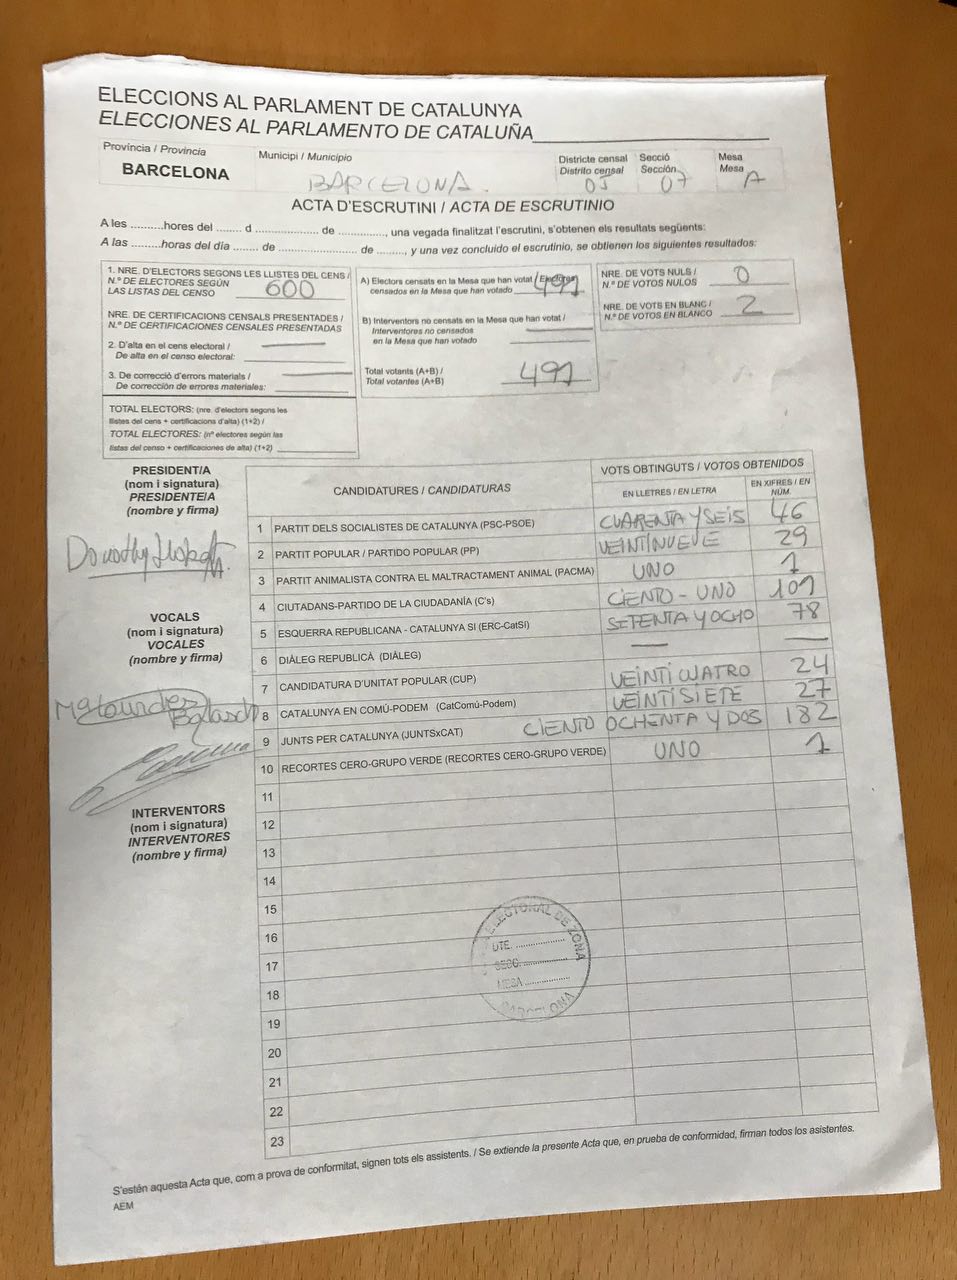 ELECCIONS AL PARLAMENT DE CATALUNYA
ELECCIONES AL PARLAMENTO DE CATALUÑA
Província / Provincia
BARCELONA
Municipi / Municipio
BARCELONA.
Districte censal
Distrito censal
05
Secció
Sección
07
Mesa
Mesa
A
ACTA D'ESCRUTINI / ACTA DE ESCRUTINIO
A les ..........hores del ....... d ........................ de .............., una vegada finalitzat l'escrutini, s'obtenen els resultats següents:
A las .........horas del día ........ de ........................ de ........, y una vez concluido el escrutinio, se obtienen los siguientes resultados:
1. NRE. D'ELECTORS SEGONS LES LLISTES DEL CENS /
N.º DE ELECTORES SEGÚN
LAS LISTAS DEL CENSO 600
NRE. DE CERTIFICACIONS CENSALS PRESENTADES /
N.º DE CERTIFICACIONES CENSALES PRESENTADAS
2. D'alta en el cens electoral /
De alta en el censo electoral:
3. De correcció d'errors materials /
De corrección de errores materiales:
TOTAL ELECTORS: (nre. d'electors segons les
llistes del cens + certificacions d'alta) (1+2) /
TOTAL ELECTORES: (nº electores según las
listas del censo + certificaciones de alta) (1+2)
A) Electors censats en la Mesa que han votat / Electores
censados en la Mesa que han votado 491
B) Interventors no censats en la Mesa que han votat /
Interventores no censados
en la Mesa que han votado
Total votants (A+B) /
Total votantes (A+B) 491
NRE. DE VOTS NULS /
N.º DE VOTOS NULOS 0
NRE. DE VOTS EN BLANC /
N.º DE VOTOS EN BLANCO 2
PRESIDENT/A
(nom i signatura)
PRESIDENTE/A
(nombre y firma)
Dorothy
VOCALS
(nom i signatura)
VOCALES
(nombre y firma)
Mª Lourdes
INTERVENTORS
(nom i signatura)
INTERVENTORES
(nombre y firma)
CANDIDATURES / CANDIDATURAS
VOTS OBTINGUTS / VOTOS OBTENIDOS
EN LLETRES / EN LETRA
EN XIFRES / EN NÚM.
1 PARTIT DELS SOCIALISTES DE CATALUNYA (PSC-PSOE) CUARENTA Y SEIS 46
2 PARTIT POPULAR / PARTIDO POPULAR (PP) VEINTINUEVE 29
3 PARTIT ANIMALISTA CONTRA EL MALTRACTAMENT ANIMAL (PACMA) UNO 1
4 CIUTADANS-PARTIDO DE LA CIUDADANÍA (C's) CIENTO - UNO 101
5 ESQUERRA REPUBLICANA - CATALUNYA SI (ERC-CatSí) SETENTA Y OCHO 78
6 DIÀLEG REPUBLICÀ (DIÀLEG) — —
7 CANDIDATURA D'UNITAT POPULAR (CUP) VEINTICUATRO 24
8 CATALUNYA EN COMÚ-PODEM (CatComú-Podem) VEINTISIETE 27
9 JUNTS PER CATALUNYA (JUNTSxCAT) CIENTO OCHENTA Y DOS 182
10 RECORTES CERO-GRUPO VERDE (RECORTES CERO-GRUPO VERDE) UNO 1
11
12
13
14
15
16
17
18
19
20
21
22
23
ELECTORAL DE ZONA
DTE. ..............
SECC. ..............
MESA ..............
BARCELONA
S'estén aquesta Acta que, com a prova de conformitat, signen tots els assistents. / Se extiende la presente Acta que, en prueba de conformidad, firman todos los asistentes.
AEM